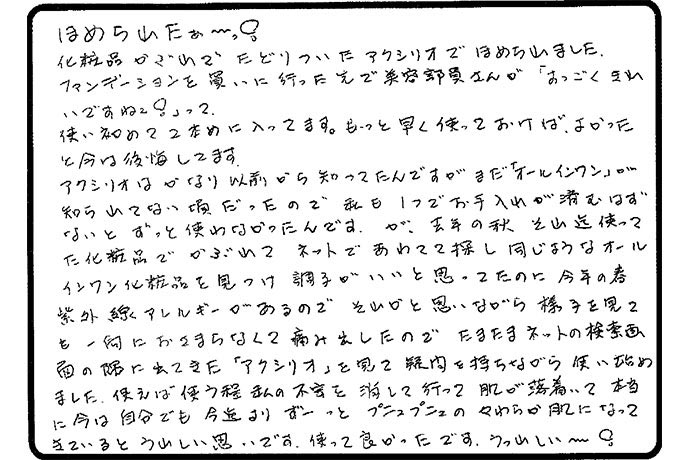 ほめられたぁ〜っ!
化粧品かぶれで たどりついた アクシリオで ほめられました.
ファンデーションを買いに行った先で美容部員さんが「すっごくきれ
いですねっ!」って.
使い初めて2本めに入ってます。もっと早く使っておけば、よかった
と今は後悔してます.
アクシリオは かなり以前から知ってたんですがまだ「オールインワン」が
知られてない頃だったので 私も1つでお手入れが済むはず
ないと ずっと使わなかったんです. が、去年の秋 それ迄使って
た化粧品で かぶれて ネットであわてて探し 同じようなオール
インワン化粧品を見つけ 調子がいいと思ってたのに 今年の春
紫外線アレルギーがあるので それかと思いながら 様子を見て
も一向におさまらなくて痛み出したので たまたまネットの検索画
面の隅に出てきた「アクシリオ」を見て 疑問を持ちながら 使い始め
ました. 使えば使う程私の不安を 消して行って 肌が落着いて 本当
に今は自分でも 今迄より ずーっと プニュプニュの やわらか肌になって
きていると うれしい思いです. 使って良かったです. うれしい〜!